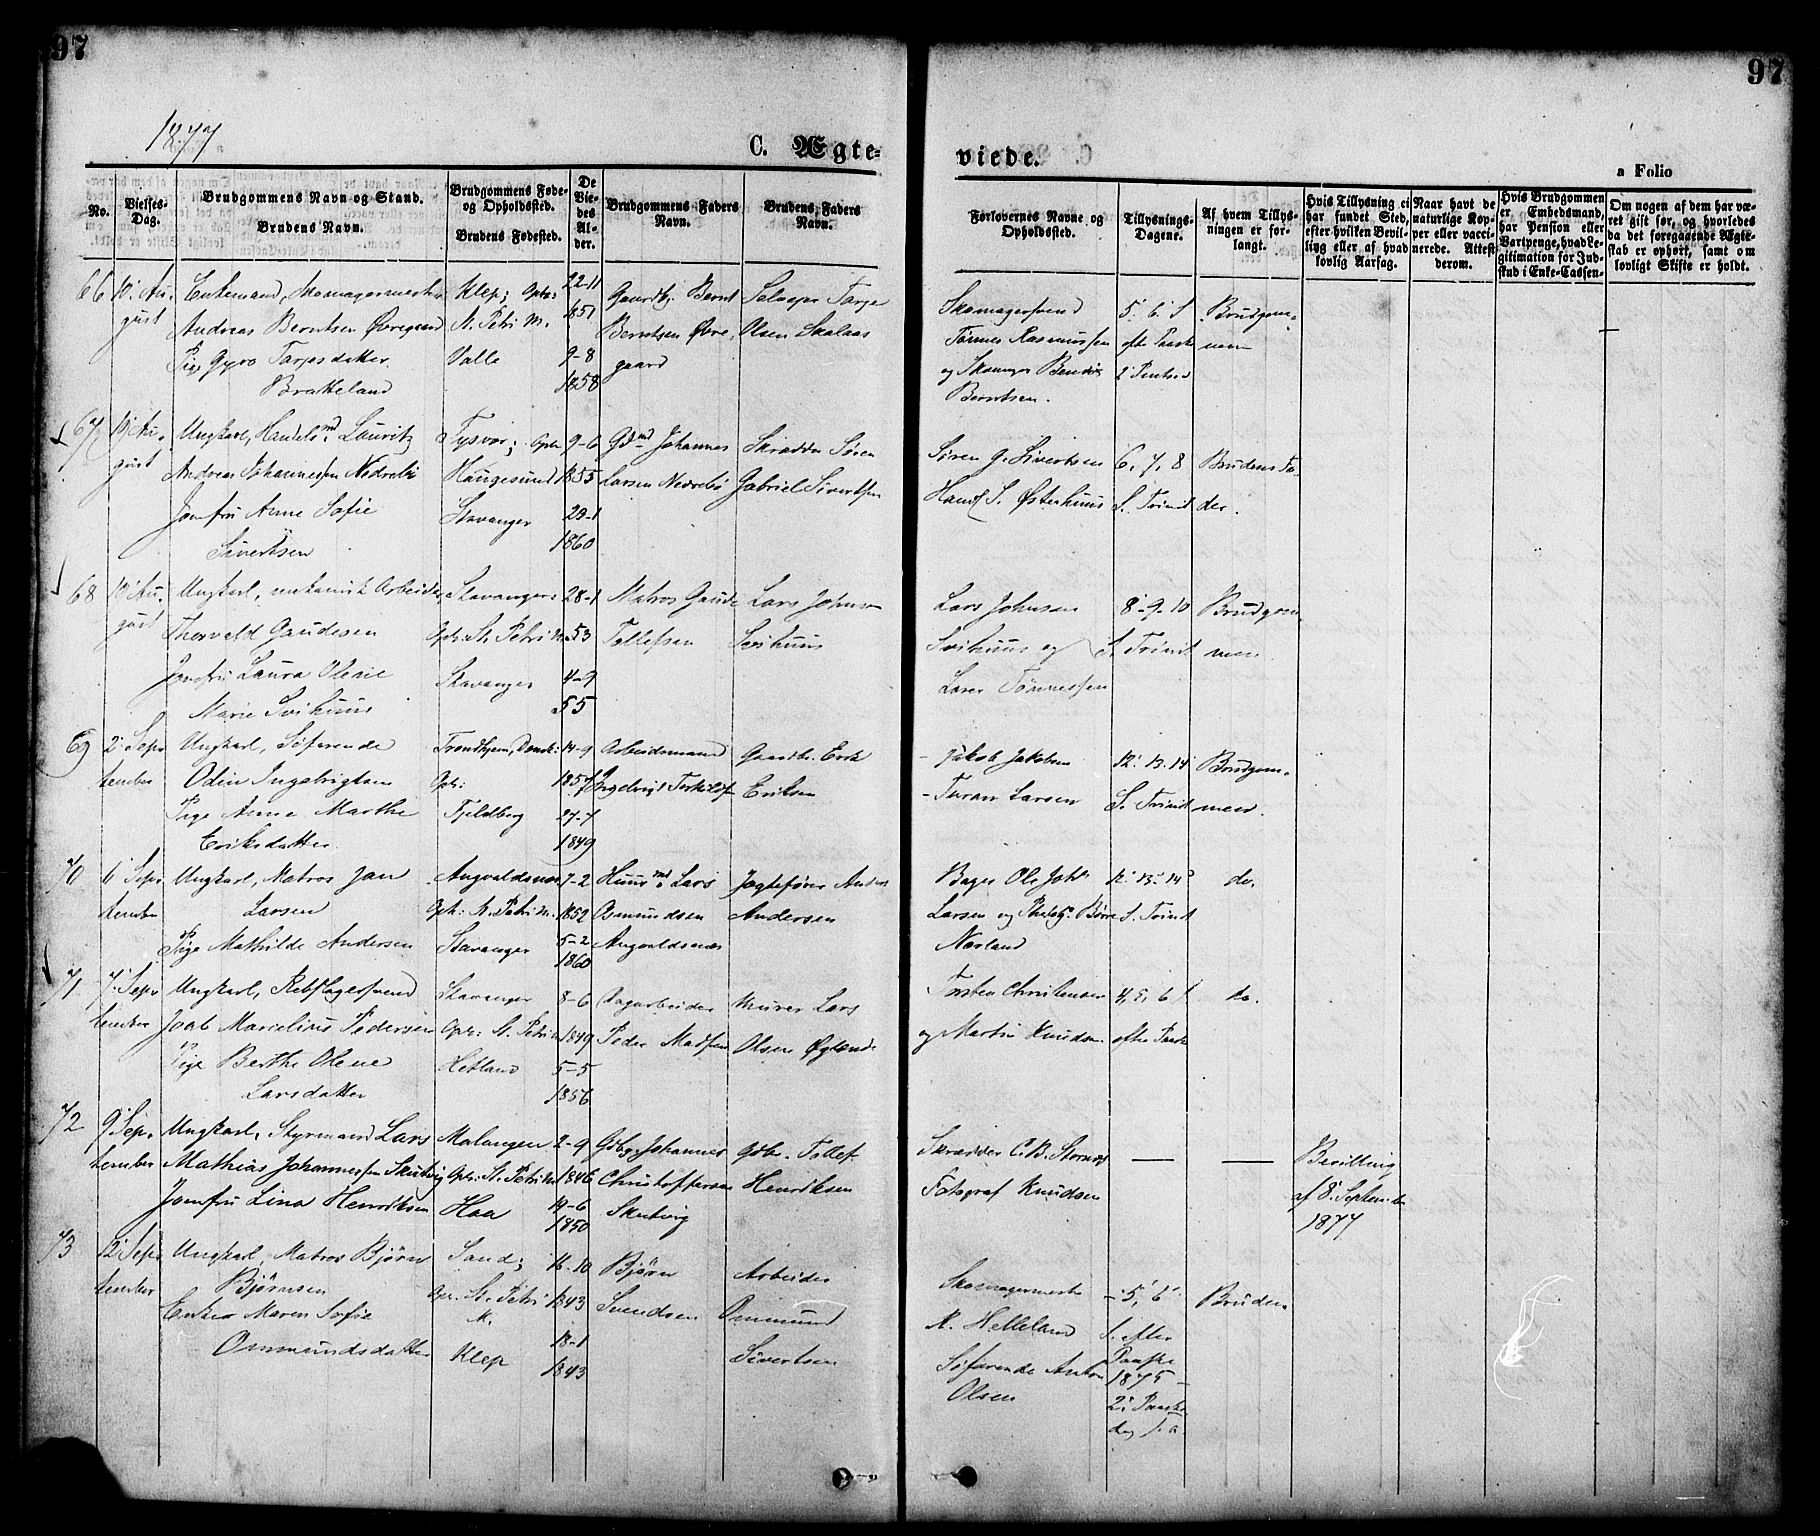 97
97
1877
C. Ægte-
viede.
a Folio
No.
Vielses-
Dag.
Brudgommens Navn og Stand.
Brudens Navn.
Brudgommens Føde-
og Opholdssted.
Brudens Fødested.
De
Vie-
des
Al-
der.
Brudgommens Faders
Navn.
Brudens Faders
Navn.
Forlovernes Navne og
Opholdssted.
Tillysnings-
Dagene.
Af hvem Tillys-
ningen er for-
langt.
Hvis Tillysning ei
har fundet Sted,
efter hvilken Bevil-
ling eller af hvad
lovlig Aarsag.
Naar havt de
naturlige Kop-
per eller vacci-
nerede. Attest
derom.
Hvis Brudgommen
er Embedsmand,
har Pension eller
Vartpenge, hvad Le-
gitimation for Ind-
skud i Enke-Cassen
Om nogen af dem har væ-
ret gift før, og hvorledes
da det foregaaende Ægte-
skab er ophørt, samt om
lovligt Skifte er holdt.
66
10' Au-
gust
Enkemand, Skomagermester
Andreas Berntsen Øvregaard
Pige Gyro Tarjesdatter
Bratteland
Klep; Oph:
St. Petri M.
Valle
22-11
1851
9-8
1858
Gaardbr. Bernt
Berntsen Øvre-
gaard
Selveier Tarje
Olsen Skalaas
Skomagersvend
Tønnes Rasmussen
og Skomager Bendix
Berntsen.
5' 6' S
efter Paaske
2 Pintsed
Brudgom-
men
67
10' Au-
gust
Ungkarl, Handelsmd Lauritz
Andreas Johannessen Nedrebø
Jomfru Anne Sofie
Sivertsen
Tysvær; Oph:
Haugesund
Stavanger
9-6
1855
29-1
1860
Gdmd Johannes
Larsen Nedrebø
Skrædder Søren
Gabriel Sivertsen
Søren G. Sivertsen
Handl S. Østerhuus
6, 7, 8
S. Trinit
Brudens Fa-
der.
68
10' Au-
gust
Ungkarl, mekanisk Arbeider,
Thorvald Gaudesen
Jomfru Laura Olene
Marie Svihuus
Stavanger:
Oph: St. Petri M.
Stavanger
28-1
53
4-9
55
Matros Gaude
Tollefsen
Lars Johnsen
Svihuus
Lars Johnsen
Svihuus og
Lars Tønnessen
8'-9-10
S. Trinit
Brudgom
men
69
2' Sep-
tember
Ungkarl, Søfarende
Odin Ingebrigtsen
Pige Anne Marthe
Eriksdatter
Trondhjem, Domk:
Oph:
Fjeldberg
14-9
1857
27-7
1849
Arbeidsmand
Ingebrigt Torkilds
Gaardbr. Erik
Eriksen
Jakob Jakobsen
Larsen
12' 13. 14
S. Trinit
Brudgom-
men.
70
6' Sep-
tember
Ungkarl, Matros Jan
Larsen
Pige Mathilde Andersen
Augvaldsnes
Oph: St. Petri M.
Stavanger
7-2
1852
5-2
1860
Huusmd Lars
Osmundsen
Augvaldsnes
Jagtefører Anders
Andersen
Bager Ole Joh.
Larsen og Børre
Nærland
12' 13' 14'
S. Trinit
do.
71
7' Sep-
tember
Ungkarl, Rebslagersvend
Joab Marcelius Pedersen
Pige Berthe Olene
Larsdatter
Stavanger
Oph: St. Petri M
Hetland
8-6
1849
5-5
1856
Dagarbeider
Peder Madsen
Murer Lars
Olsen Øglænde
Torsten Christensen
og Martin Knudsen
4, 5, 6 S.
efter Paaske
do.
72
9' Sep-
tember
Ungkarl, Styrmand Lars
Mathias Johannessen Skutvig
Jomfru Lina Henriksen
Malangen
Oph: St. Petri M.
Haa
2-9
1846
19-6
1850
Gdbr. Johannes
Christoffersen
Skutvig
Gdbr. Tollef
Henriksen
Skrædder C. B. Stornes
Fotograf Knudsen
Bevilling
af 8' September
1877
73
12' Sep-
tember
Ungkarl, Matros Bjørn
Bjørnsen
Enke Maren Sofie
Ommundsdatter
Sand;
Oph. St. Petri
M.
Klep
16-10
1843
18-1
1843
Bjørn
Svendsen
Arbeider
Ommund
Sivertsen
Skomagermester
R. Helleland
Søfarende Anton
Olsen
5', 6'
S. efter
Paaske
1875 -
2' Paaske
dag d. a
Bruden